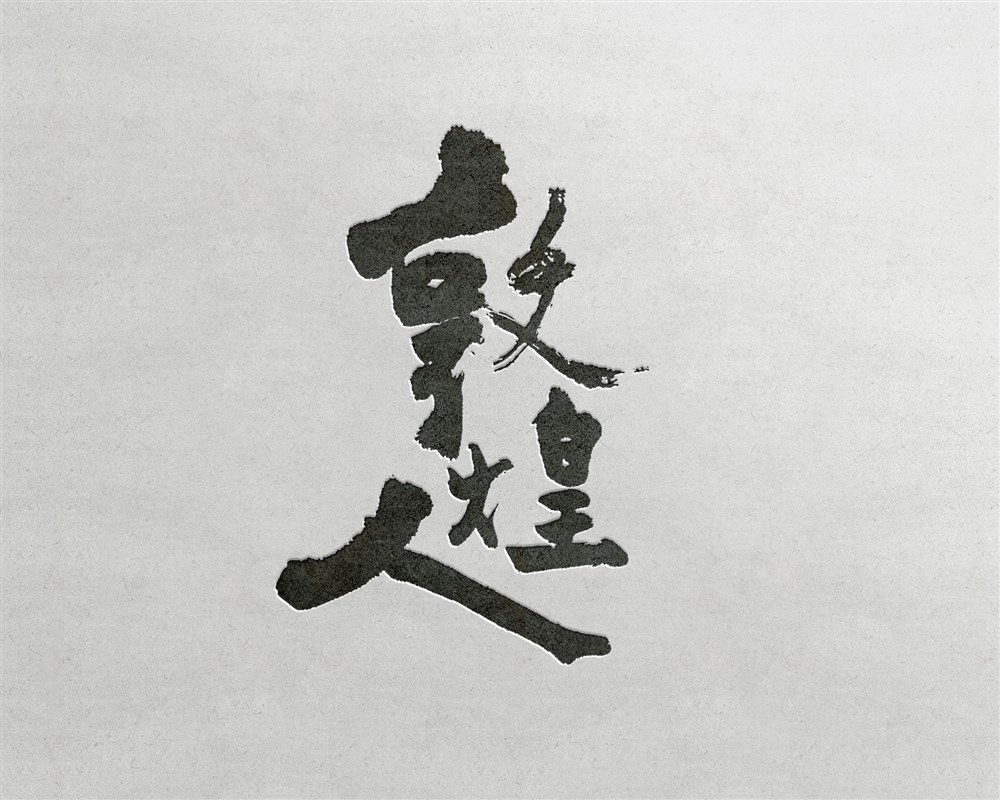 敦煌人